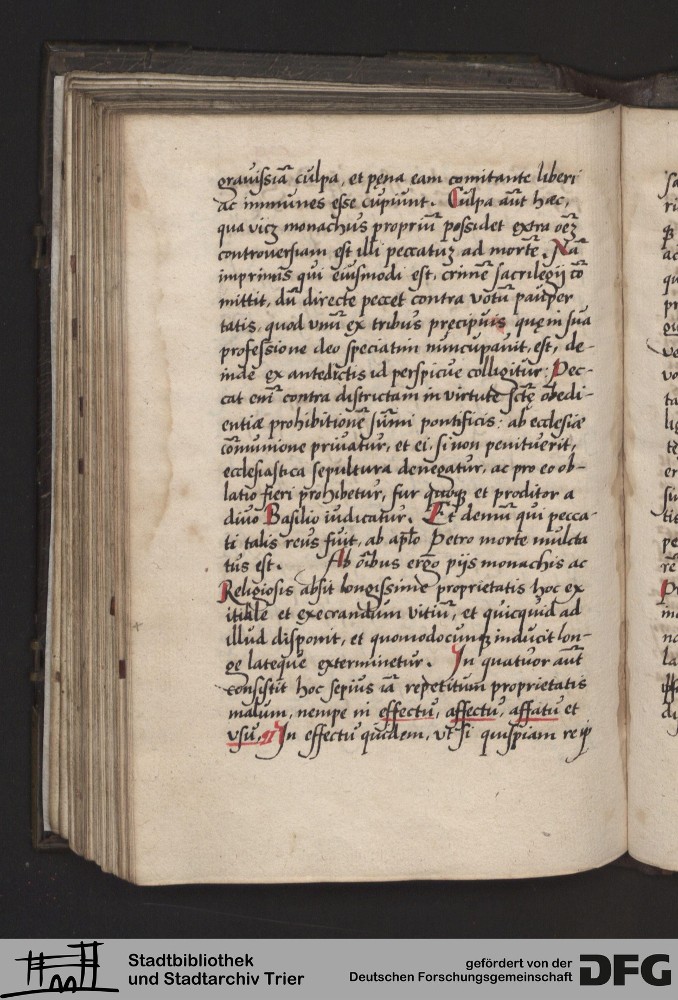 grauissiā culpa, et pęna eam comitante liberi
ac immunes esse cupiunt. Culpa aūt hæc,
qua vicꝫ monachus propriū possidet extra oēꝫ
controuersiam est illi peccatuꝫ ad mortē. Nā
imprimis qui eiusmodi est, crimē sacrilegij cō
mittit, dū directe peccet contra votū pauper
tatis, quod vnū ex tribus pręcipuis quę in sua
professione deo speciatim nuncupauit, est, de-
inde ex antedictis id perspicue colligitur: Pec-
cat enī contra districtam in virtute sctę obedi-
entiæ prohibitionē sūmi pontificis: ab ecclesiæ
cōmunione priuatur, et ei, si non penituerit,
ecclesiastica sepultura denegatur, ac pro eo ob-
latio fieri prohibetur, fur quoqꝫ et proditor a
diuo Basilio iudicatur. Et demū qui pecca-
ti talis reus fuit, ab aplo Petro morte mulcta
tus est. Ab oībus ergo pijs monachis ac
Religiosis absit longissime proprietatis hoc ex
itiale et execrandum vitiū, et quicquid ad
illud disponit, et quomodocunqꝫ inducit lon-
ge lateque exterminetur. In quatuor aūt
consistit hoc sepius iā repetitum proprietatis
malum, nempe in effectu, affectu, affatu et
vsu. In effectu quidem, vt si quispiam re ip
Stadtbibliothek
und Stadtarchiv Trier
gefördert von der
Deutschen Forschungsgemeinschaft
DFG